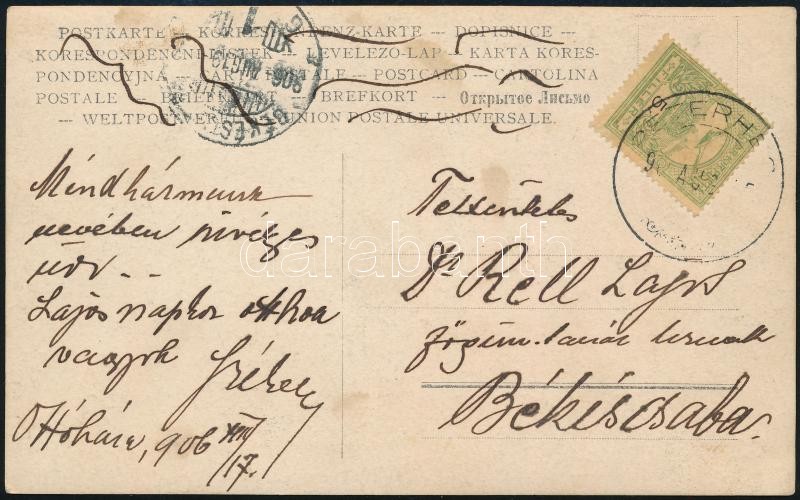 POSTKARTE — KORRES DENZ-KARTE — DOPISNICE —
KORESPONDENČNI LISTEK — LEVELEZO-LAP — KARTA KORES-
PONDENCYJNA — CARTE POSTALE — POSTCARD — CARTOLINA
POSTALE — BRIEFKAART — BREFKORT — Открытое Письмо
— WELTPOSTVEREIN — UNION POSTALE UNIVERSALE.
FILLÉR
BÉKÉS
906
Mindhármunk
nevében szívélyes
üdv..
Lajos napkor otthon
vagyok
906 VIII/17.
Tekintetes
Dr Rell Lajos
főgim. tanár úrnak
Békéscsaba.
darabanth